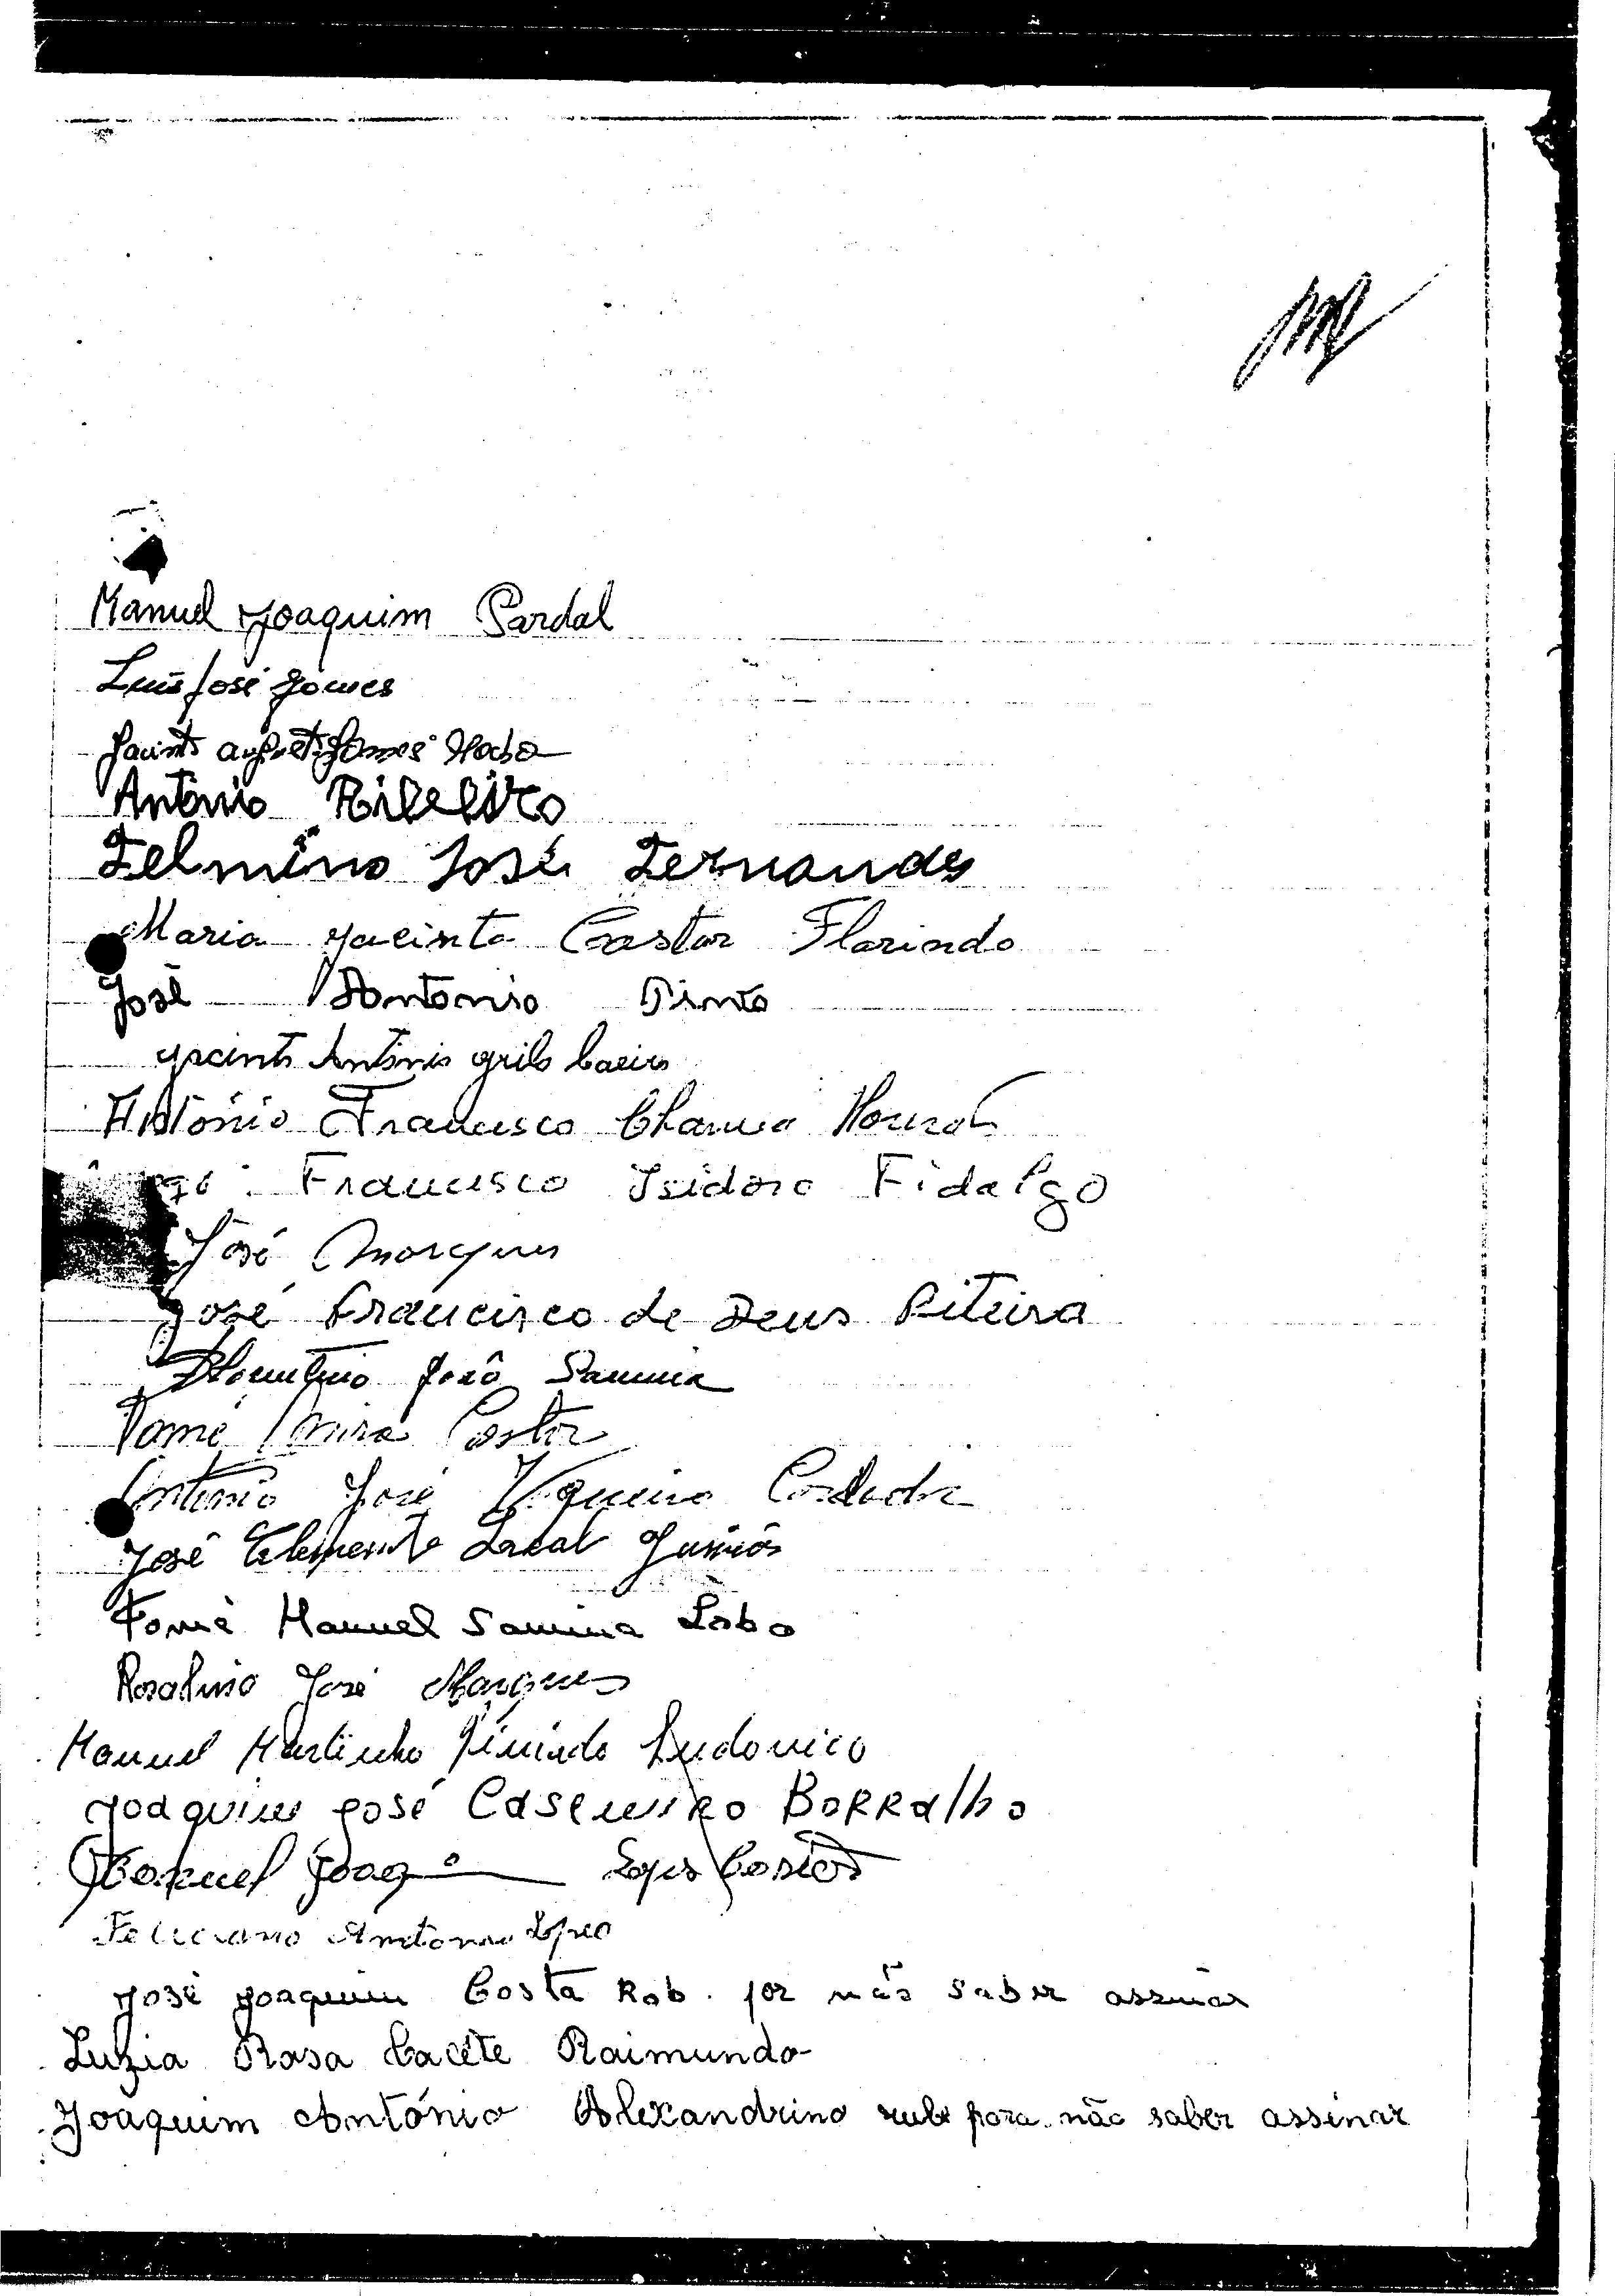 Manuel Joaquim Pardal
Luis José Gomes
Jacinto Gomes
António Ribeiro
Felmino José Fernandes
Maria Jacinta Castor Florindo
José Antonio Pinto
Jacinto António grilo
António Francisco
Francisco Isidoro Fidalgo
José Marques
José Francisco de Deus Piteira
João Samina
Tomé Mira Castor
António José
José Clemente Júnior
Tomé Manuel Samina Lobo
Rosalino José Marques
Manuel Martinho Ludovico
Joaquim José Casemiro BORRalho
Manuel Joaqº Lopes
Feliciano Antonio Lopes
José Joaquim Costa Rob. por não saber assinar
Luzia Rosa Cacête Raimundo
Joaquim António Alexandrino não saber assinar